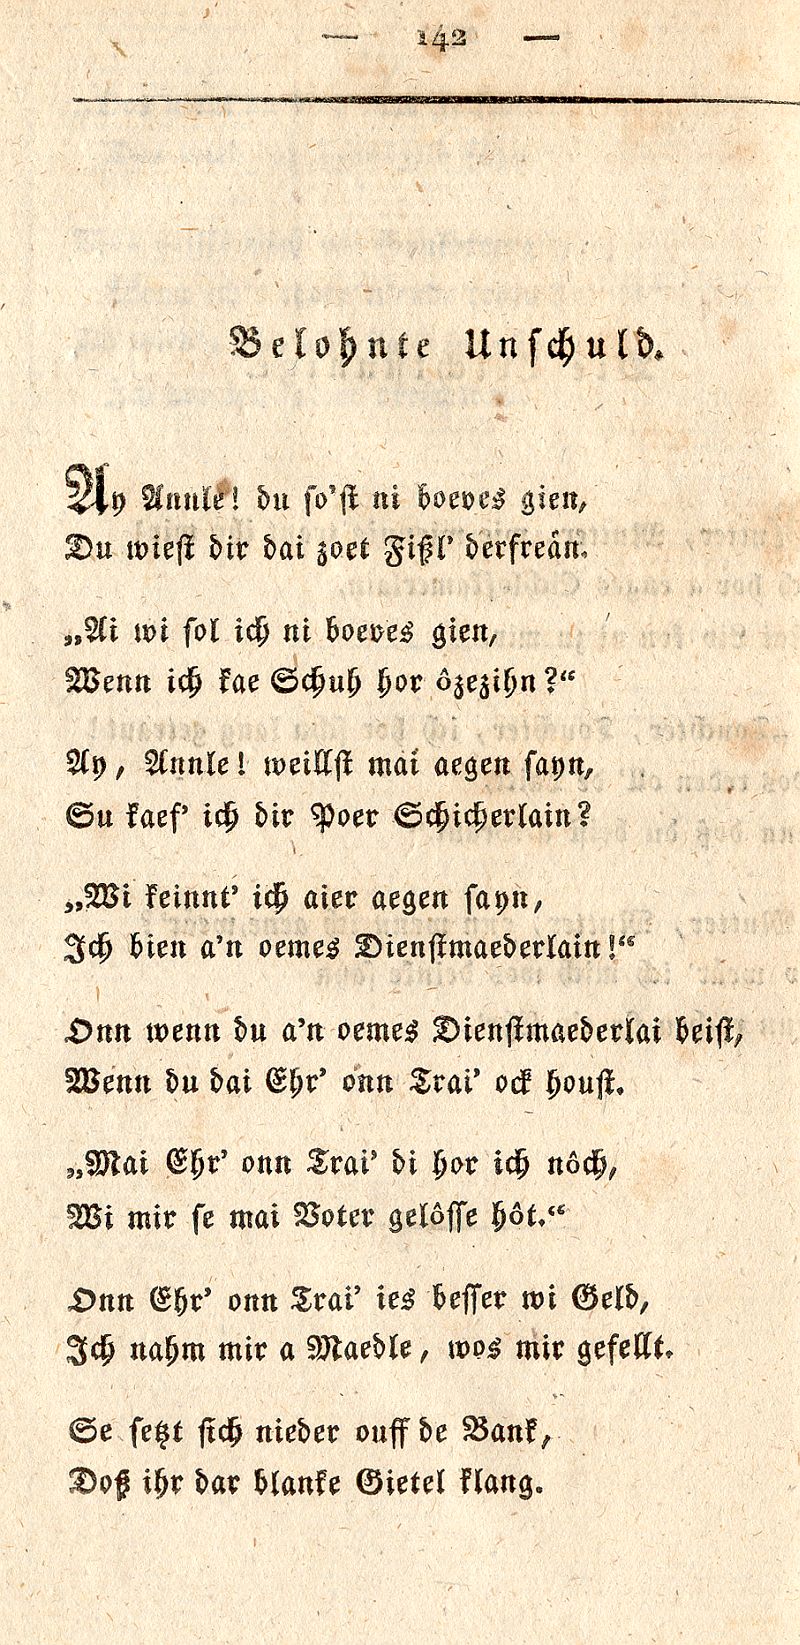 — 142 —
Belohnte Unschuld.
Ay Annle! du so'st ni boeves gien,
Du wiest dir dai zoet Fißl' derfreân.
„Ai wi sol ich ni boeves gien,
Wenn ich kae Schuh hor ôzezihn?“
Ay, Annle! weillst mai aegen sayn,
Su kaef' ich dir Poer Schicherlain?
„Wi keinnt' ich aier aegen sayn,
Ich bien a'n oemes Dienstmaederlain!“
Onn wenn du a'n oemes Dienstmaederlai beist,
Wenn du dai Ehr' onn Trai' ock houst.
„Mai Ehr' onn Trai' di hor ich nôch,
Wi mir se mai Voter gelôsse hôt.“
Onn Ehr' onn Trai' ies besser wi Geld,
Ich nahm mir a Maedle, wos mir gefellt.
Se setzt sich nieder ouff de Bank,
Doß ihr dar blanke Gietel klang.